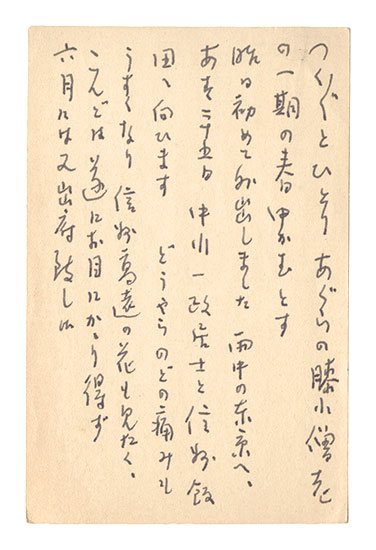 つく〲とひとり あぐらの膝小僧を
の一期の春ゆかむとす
昨日初めて外出しました 雨中の東京へ、
あす二十五日 中川一政居士と信州飯
田へ向ひます どうやらのどの痛みも
うすくなり 信州高遠の花も見たく、
こんどは遂にお目にかゝり得ず
六月には又出府致し候